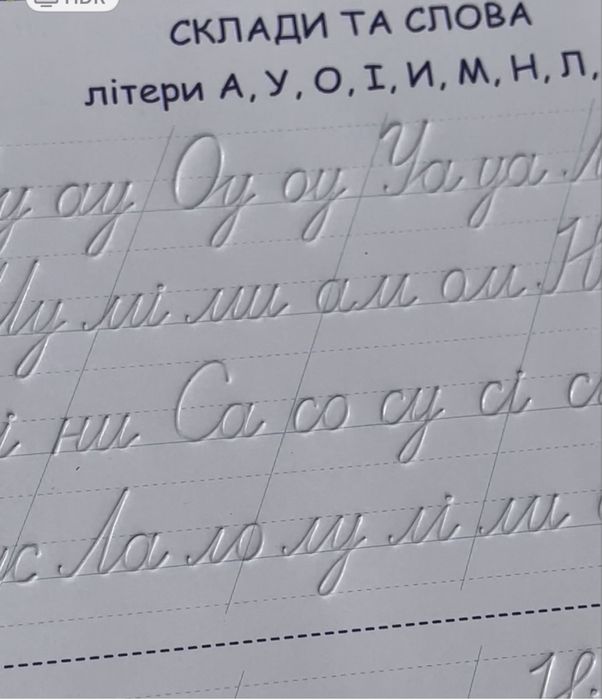 СКЛАДИ ТА СЛОВА
літери А, У, О, І, И, М, Н, Л,
ау Оу оу Уа уа
мі ми ам ом Н
ни Са со су сі
Ла ло лу лі ли